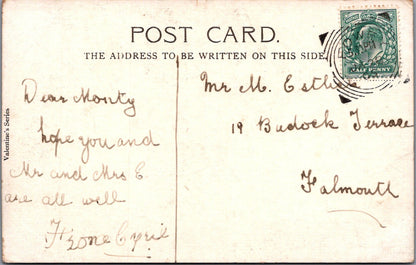 POST CARD.
THE ADDRESS TO BE WRITTEN ON THIS SIDE
HALF PENNY
Valentine's Series
Dear Monty
hope you and
Mr and Mrs E.
are all well
Cyril
Mr M. 
19 Budock Terrace
Falmouth